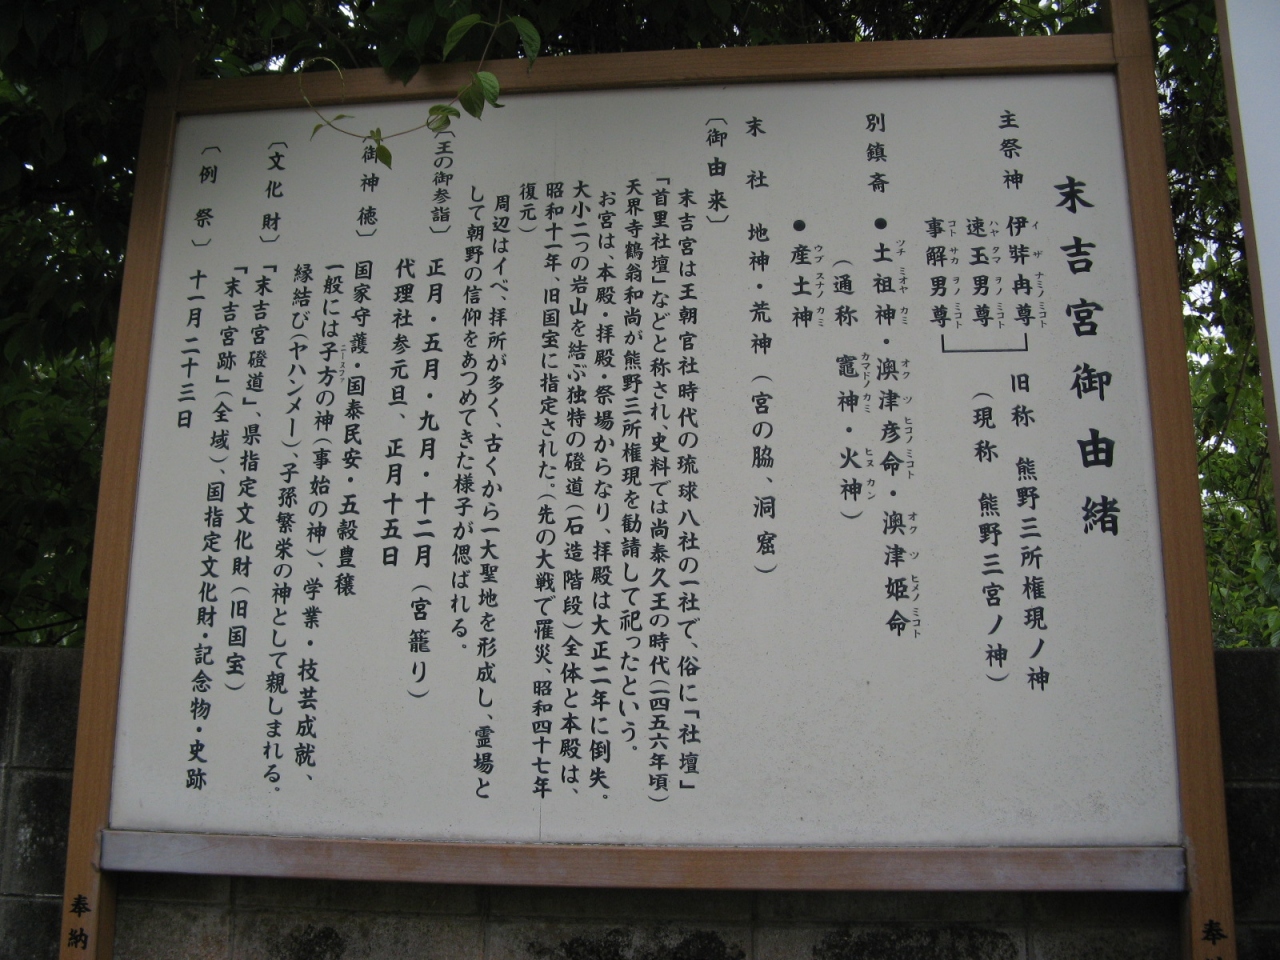 末吉宮御由緒
主祭神 伊弉冉尊 旧称 熊野三所権現ノ神
速玉男尊 (現称 熊野三宮ノ神)
事解男尊
別鎮斎 ●土祖神・澳津彦命・澳津姫命
(通称 竈神・火神)
●産土神
末社 地神・荒神(宮の脇、洞窟)
〔御由来〕
末吉宮は王朝官社時代の琉球八社の一社で、俗に「社壇」
「首里社壇」などと称され、史料では尚泰久王の時代(一四五六年頃)
天界寺鶴翁和尚が熊野三所権現を勧請して祀ったという。
お宮は、本殿・拝殿・祭場からなり、拝殿は大正二年に倒失。
大小二つの岩山を結ぶ独特の磴道(石造階段)全体と本殿は、
昭和十一年、旧国宝に指定された。(先の大戦で罹災、昭和四十七年
復元)
周辺はイベ、拝所が多く、古くから一大聖地を形成し、霊場と
して朝野の信仰をあつめてきた様子が偲ばれる。
〔王の御参詣〕 正月・五月・九月・十二月(宮籠り)
代理社参元旦、正月十五日
〔御神徳〕 国家守護・国泰民安・五穀豊穣
一般には子方の神(事始の神)、学業・技芸成就、
縁結び(ヤハンメー)、子孫繁栄の神として親しまれる。
〔文化財〕 「末吉宮磴道」、県指定文化財(旧国宝)
「末吉宮跡」(全域)、国指定文化財・記念物・史跡
〔例祭〕 十一月二十三日
奉納
奉